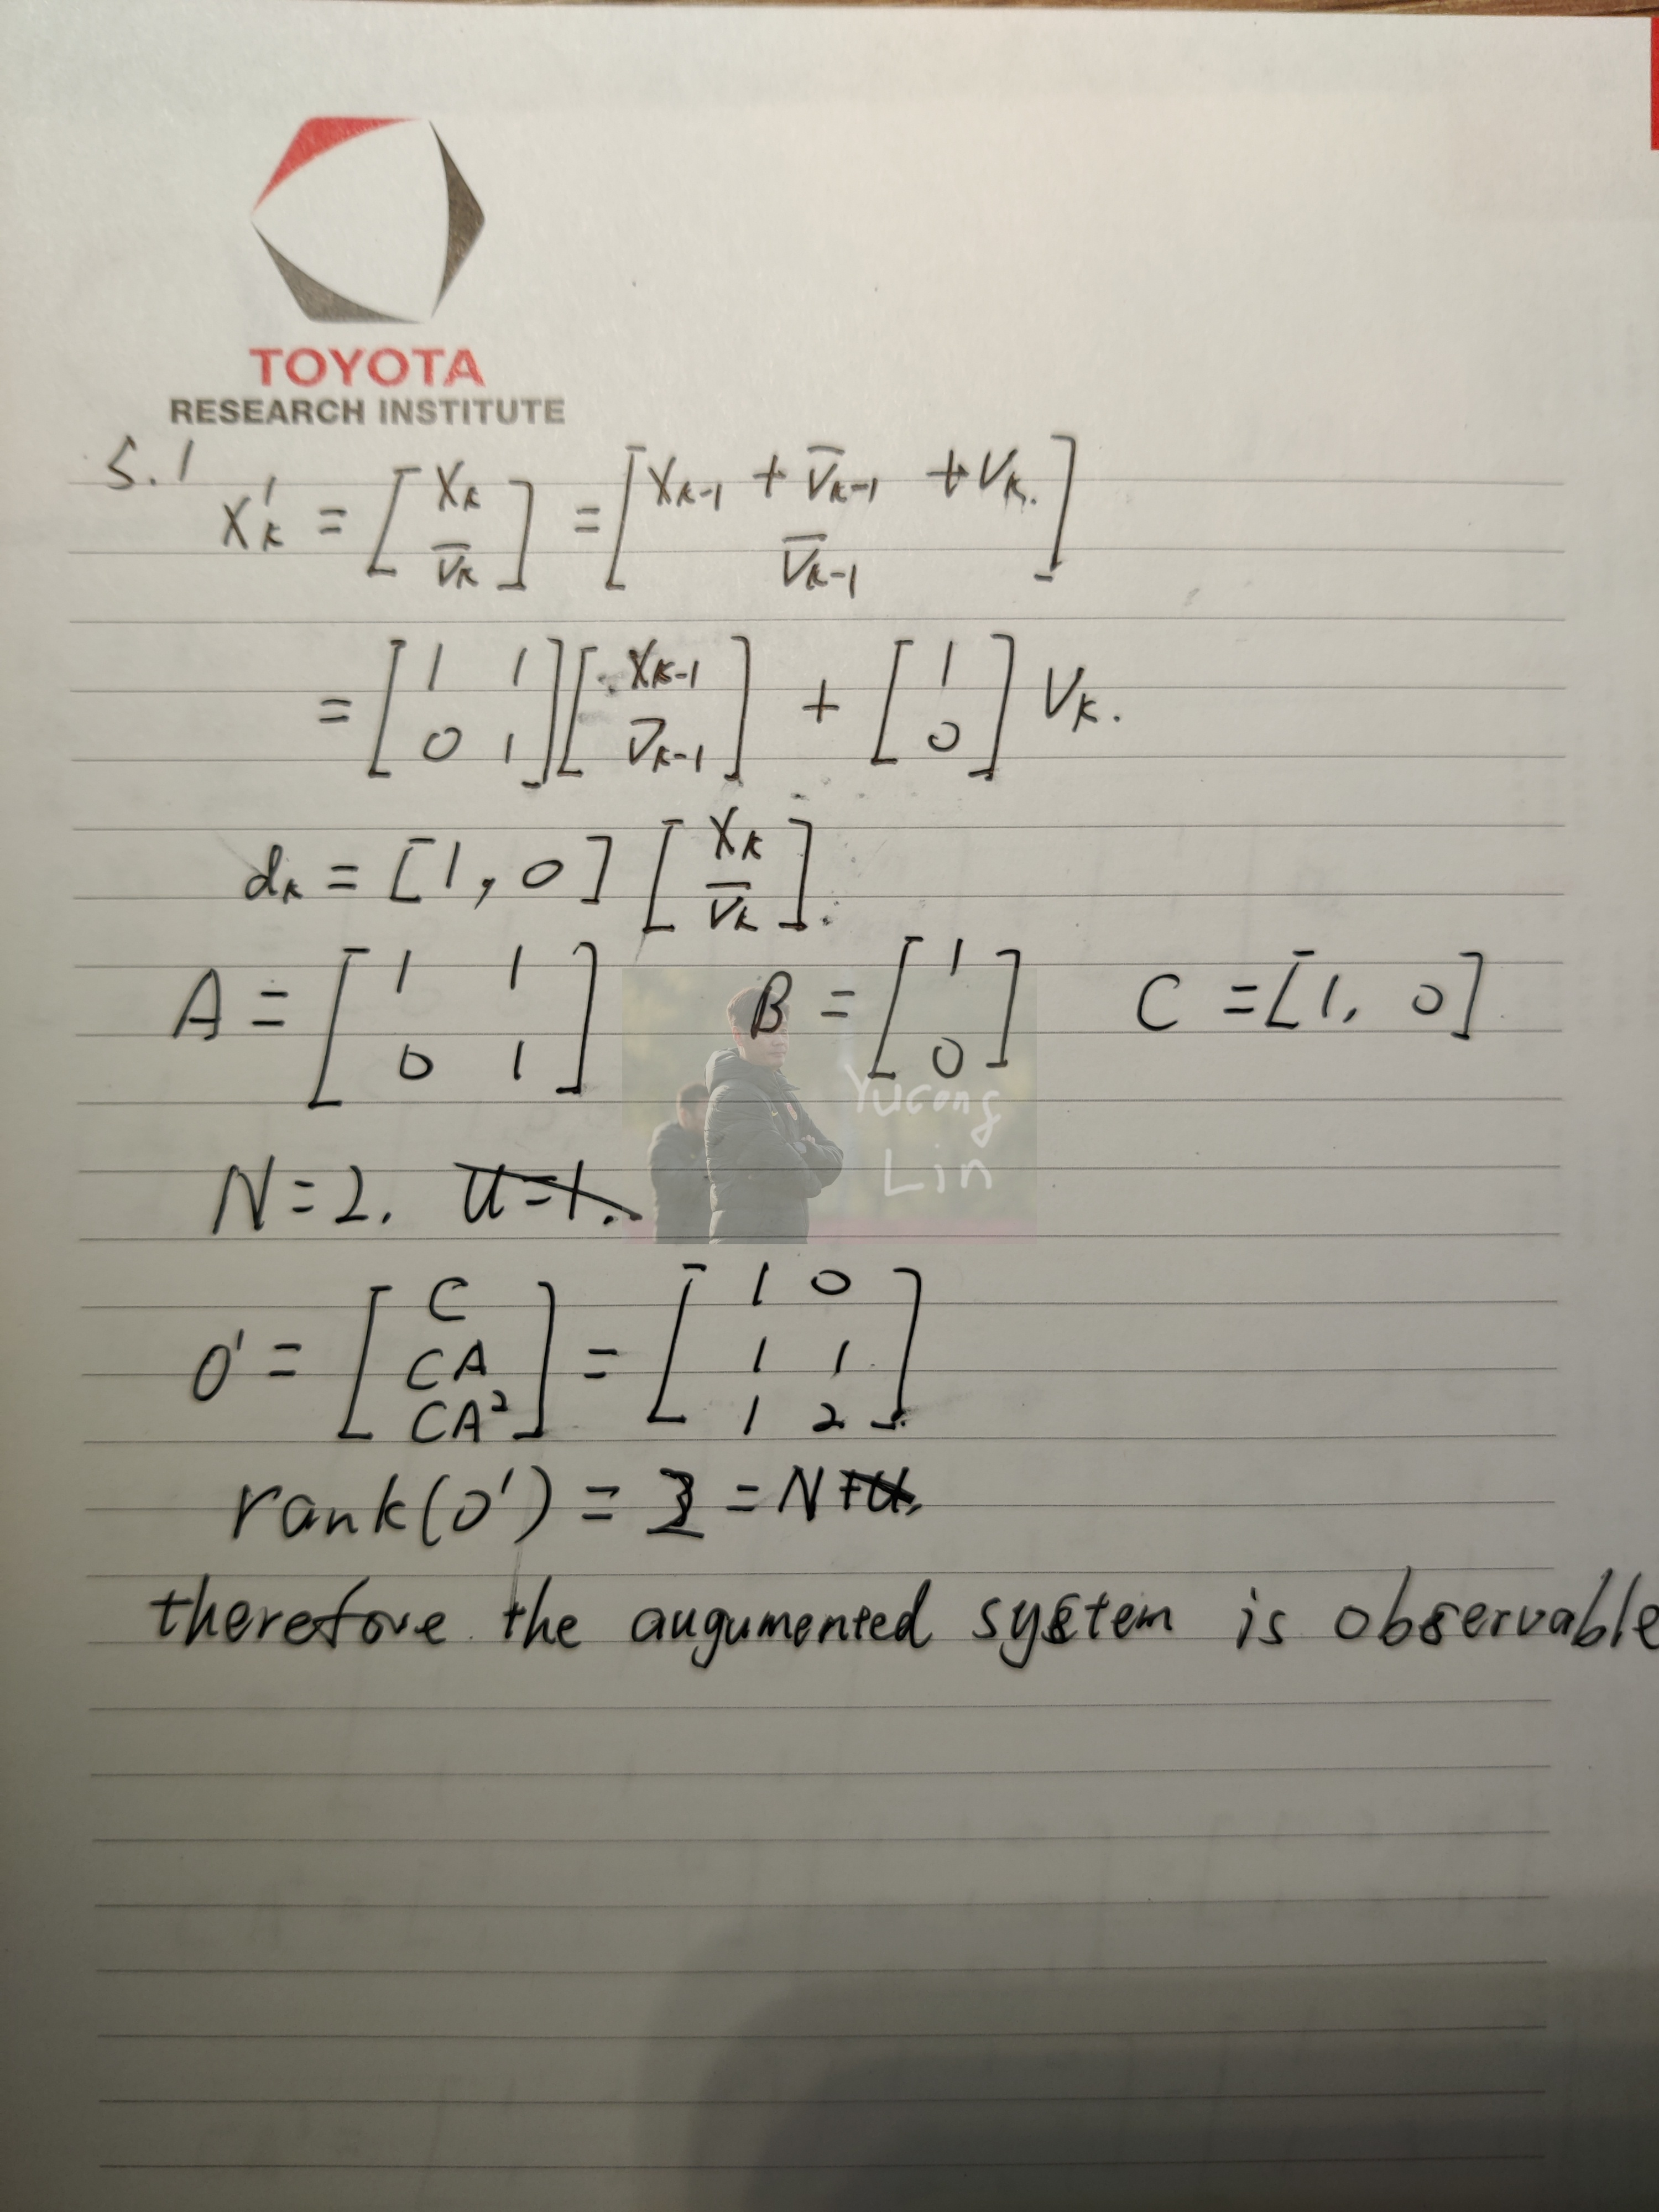 TOYOTA
RESEARCH INSTITUTE
5.1
X'ₖ = [Xₖ; V̄ₖ] = [Xₖ₋₁ + V̄ₖ₋₁ + Vₖ.; V̄ₖ₋₁]
= [1 1; 0 1] [Xₖ₋₁; V̄ₖ₋₁] + [1; 0] Vₖ.
dₖ = [1, 0] [Xₖ; V̄ₖ].
A = [1 1; 0 1] B = [1; 0] C = [1, 0]
Yucong
Lin
N = 2. U = 1.
O' = [C; CA; CA²] = [1 0; 1 1; 1 2]
rank(O') = 2 = N + U.
therefore the augumented system is observable